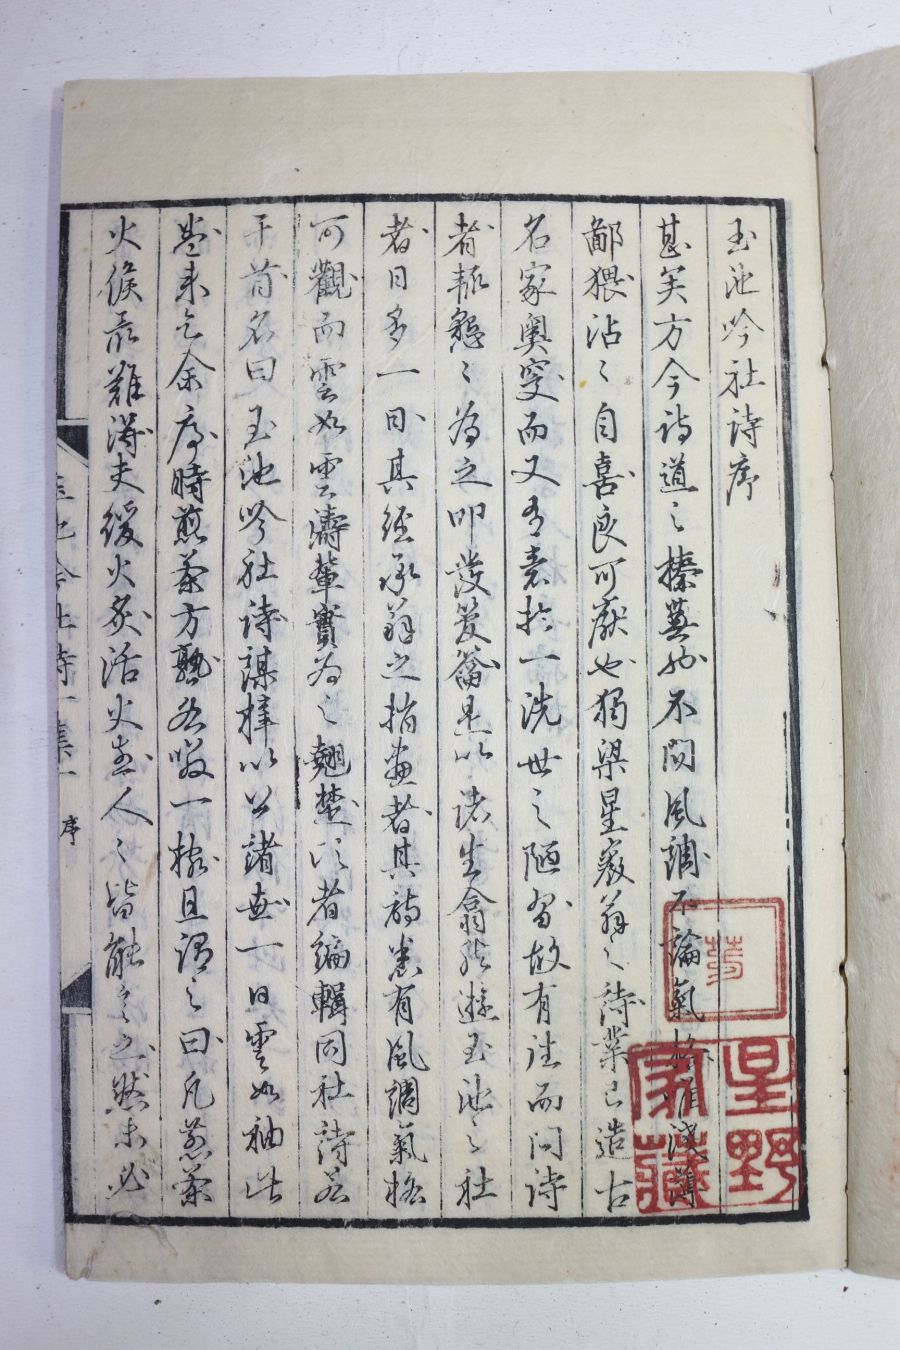 玉池吟社詩序
甚矣方今詩道之榛蕪也不問風調不論氣格唯淺薄
鄙猥沾〻自喜良可厭也獨梁星巖翁之詩業已造古
名家奧窔而又有意於一洗世之陋習故有詩而問詩
者輒懇〻為之叩發是以諸生翕然遊玉池之社
者日多一日其經承翁之指畫者其詩悉有風調氣格
可觀而雲如雲濤輩實為之翹楚以者編輯同社詩若
干首名曰玉池吟社詩謀梓以公諸世一日雲如袖此
卷來乞余序時煎茶方熟為喫一椀且謂之曰凡煎茶
火候最難得夫緩火炙活火煎人〻皆能言之然未必
玉池吟社詩一集一 序
星野家藏